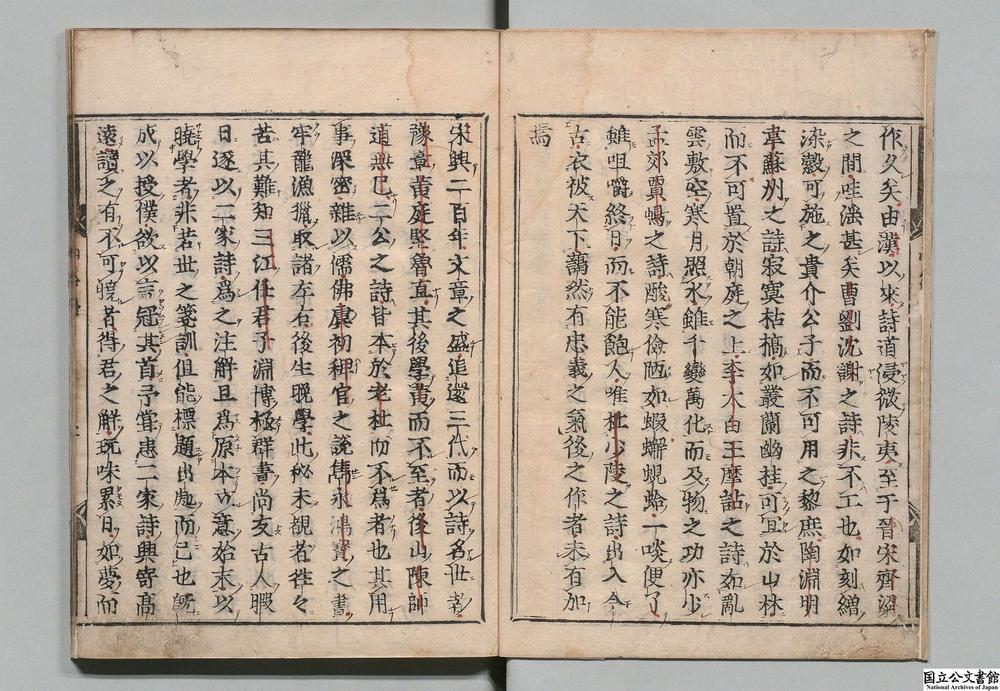 作久矣由漢以來詩道浸微陵夷至于晉宋齊梁
之間哇淫甚矣曹劉沈謝之詩非不工也如刻繒
染縠可施之貴介公子而不可用之黎庶陶淵明
韋蘇州之詩寂寞枯槁如叢蘭幽桂可宜於山林
而不可置於朝庭之上李太白王摩詰之詩如亂
雲敷空寒月照水雖千變萬化而及物之功亦少
孟郊賈島之詩酸寒儉陋如蝦蠏蜆蛤一啖便了
雖咀嚼終日而不能飽人唯杜少陵之詩出入今
古衣被天下藹然有忠義之氣後之作者未有加
焉
宋興二百年文章之盛追還三代而以詩名世者
豫章黃庭堅魯直其後學黃而不至者後山陳師
道無已二公之詩皆本於老杜而不爲者也其用
事深密雜以儒佛虞初稗官之說雋永鴻寶之書
牢籠漁獵取諸左右後生晚學此秘未覩者徃々
苦其難知三江任君子淵博極群書尚友古人暇
日逐以二家詩爲之注解且爲原本立意始末以
曉學者非若世之箋訓但能標題出處而已也旣
成以授僕欲以言冠其首予甞患二家詩興寄高
遠讀之有不可曉者得君之解玩味累日如夢而
国立公文書館
National Archives of Japan